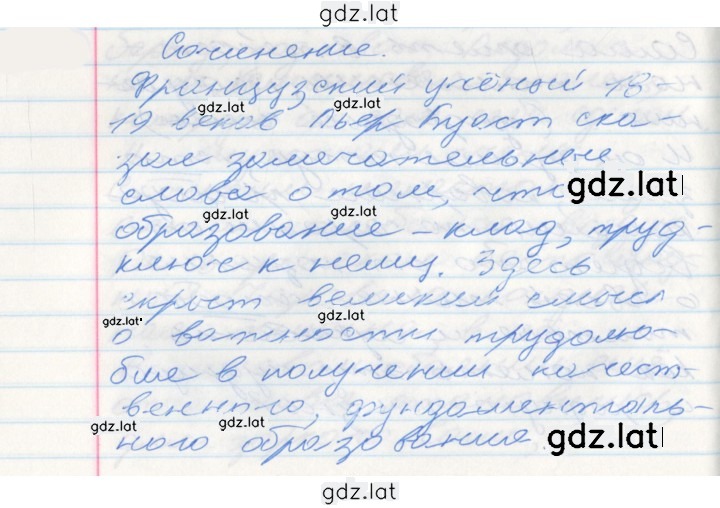 gdz.lat
Сочинение.
Французский учёный 18-
gdz.lat gdz.lat
19 веков Пьер Буаст ска-
зал замечательные
слова о том, что
gdz.lat
gdz.lat gdz.lat
образование – клад, труд-
ключ к нему. Здесь
скрыт великий смысл
gdz.lat gdz.lat
о важности трудолю-
бия в получении качест-
венного, фундаменталь-
gdz.lat gdz.lat
ного образования.
gdz.lat
gdz.lat